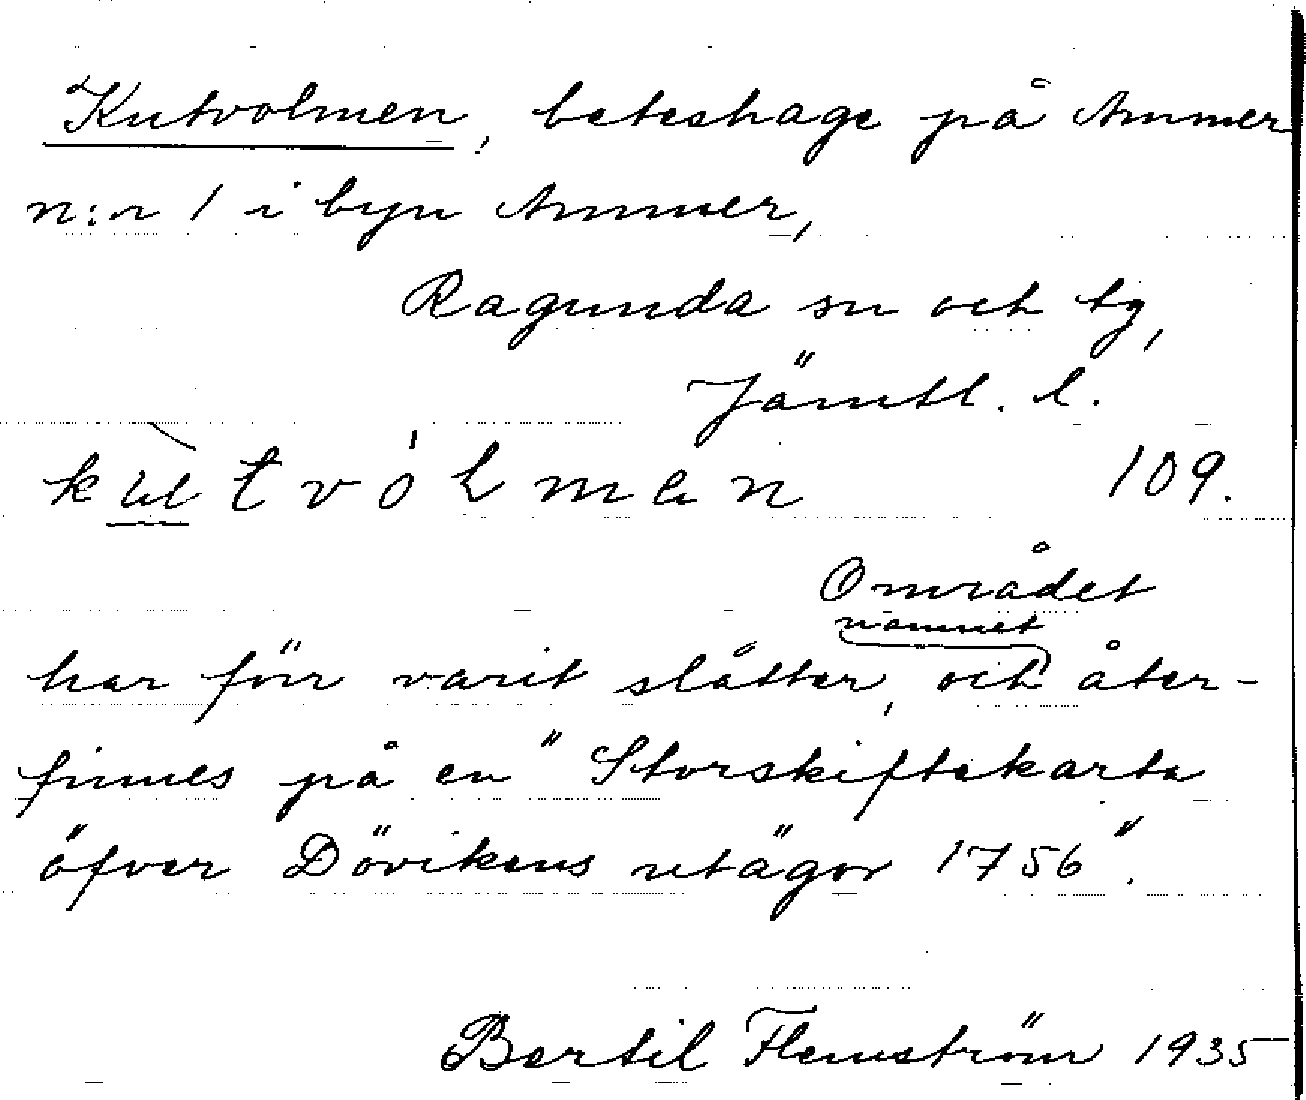 Kutvolmen, beteshage på Ammer
n:r 1 i byn Ammer,
Ragunda sn och tg,
Jämtl. l.
109.
Området
namnet
har förr varit slåtter, och åter-
finnes på en "Storskiftskarta
öfver Dövikens utägor 1756".
Bertil Flemström 1935